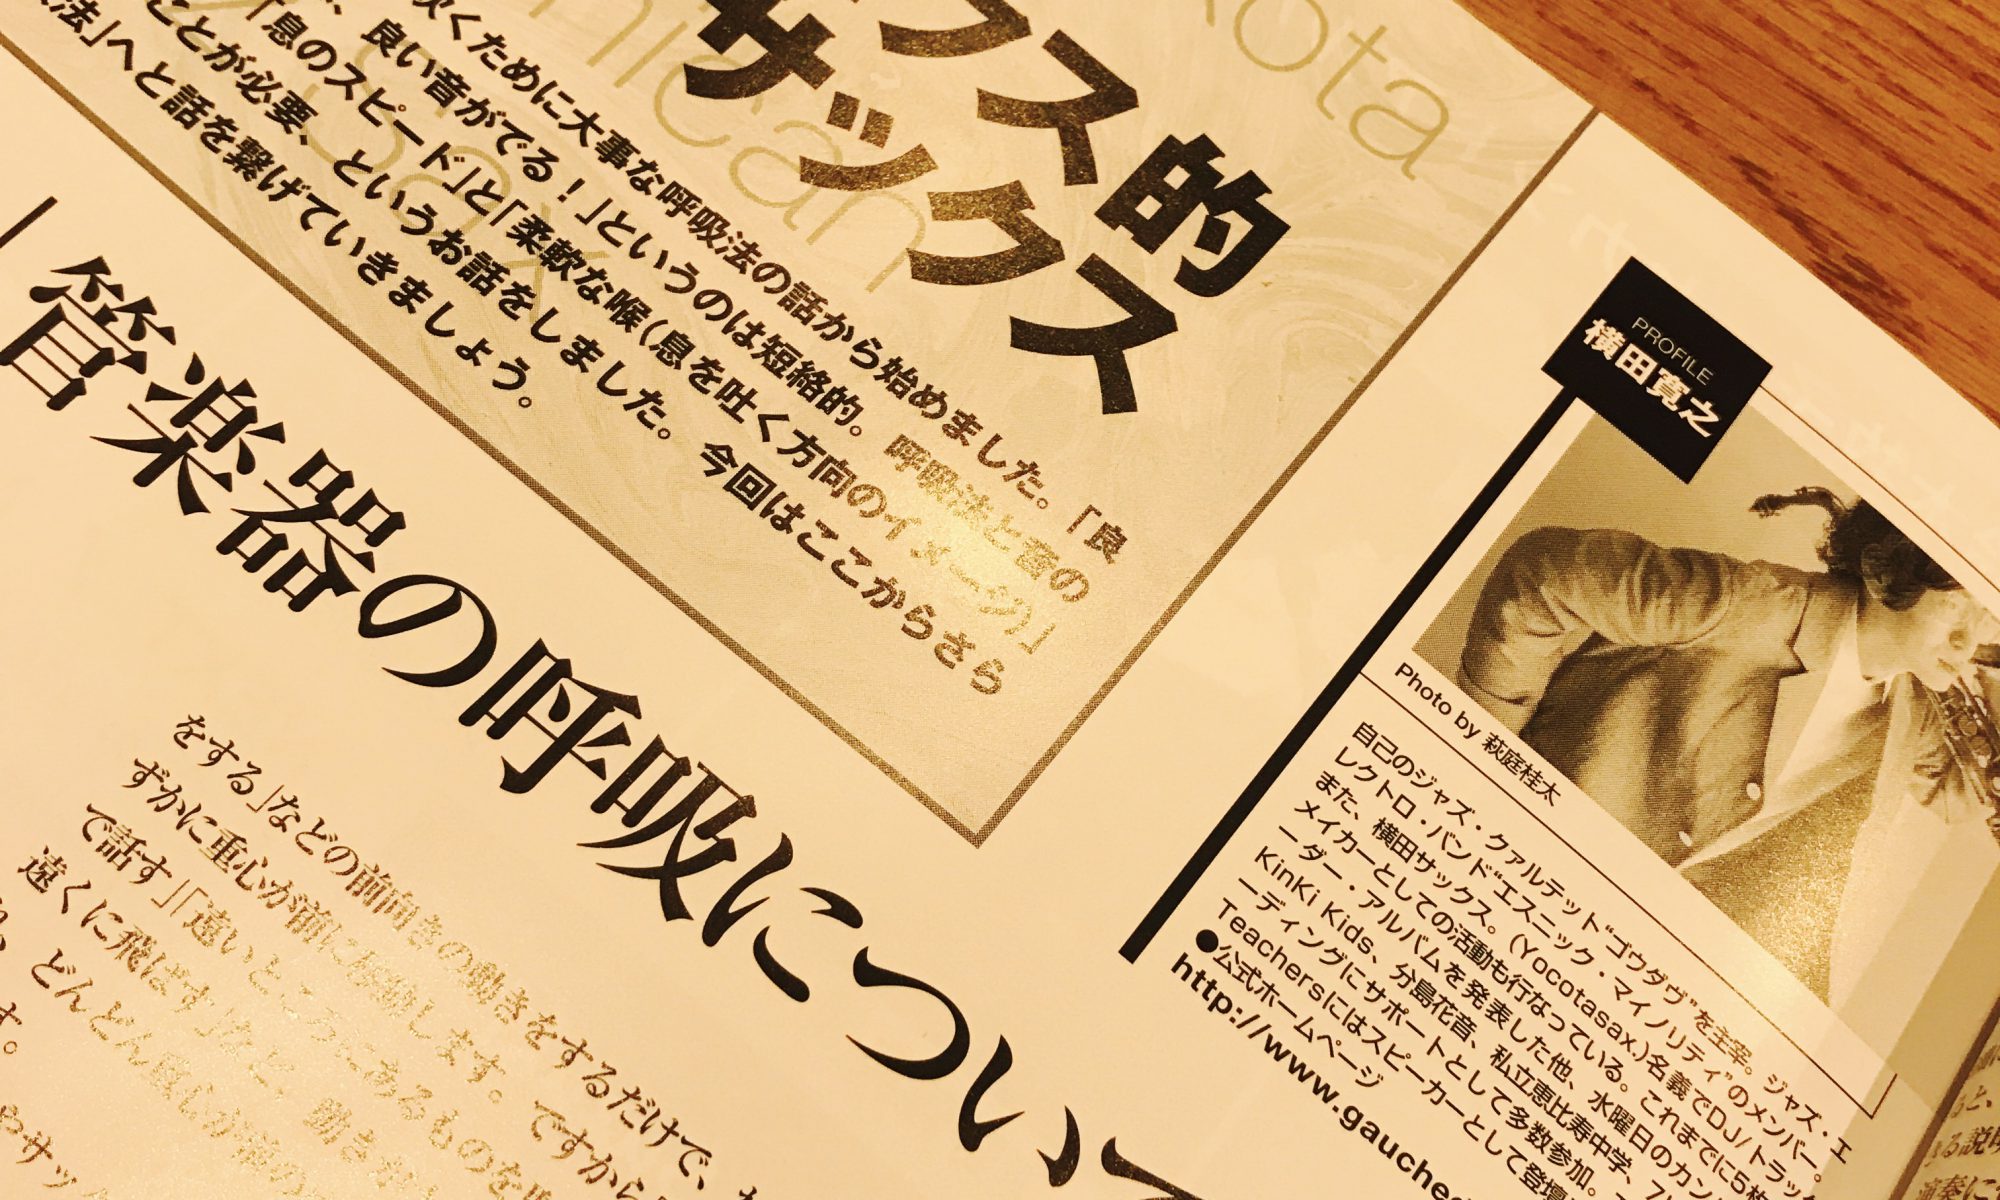 kota
nican
Sax
フス的
サックス
吹くために大事な呼吸法の話から始めました。「良
、良い音がでる！」というのは短絡的。呼吸法と音の
「息のスピード」と「柔軟な喉(息を吐く方向のイメージ)」
ことが必要、というお話をしました。今回はここからさら
法」へと話を繋げていきましょう。
管楽器の呼吸について
をする」などの前向きの動きをするだけで、
ずかに重心が前に移動します。ですから
で話す」「遠いところにあるものを
遠くに飛ばす」など、動き
どんどん重心が前の
す。
やサッ
PROFILE
横田寛之
Photo by 萩庭桂太
自己のジャズ・クァルテット“ゴウダヴ”を主宰。ジャズ・エ
レクトロ・バンド“エスニック・マイノリティ”のメンバー。
また、横田サックス。(Yocotasax.)名義でDJ/トラック
メイカーとしての活動も行なっている。これまでに5枚
ーダー・アルバムを発表した他、水曜日のカン
KinKi Kids、分島花音、私立恵比寿中学、
ーディングにサポートとして多数参加。
Teachersにはスピーカーとして登壇
●公式ホームページ
http://www.gauche